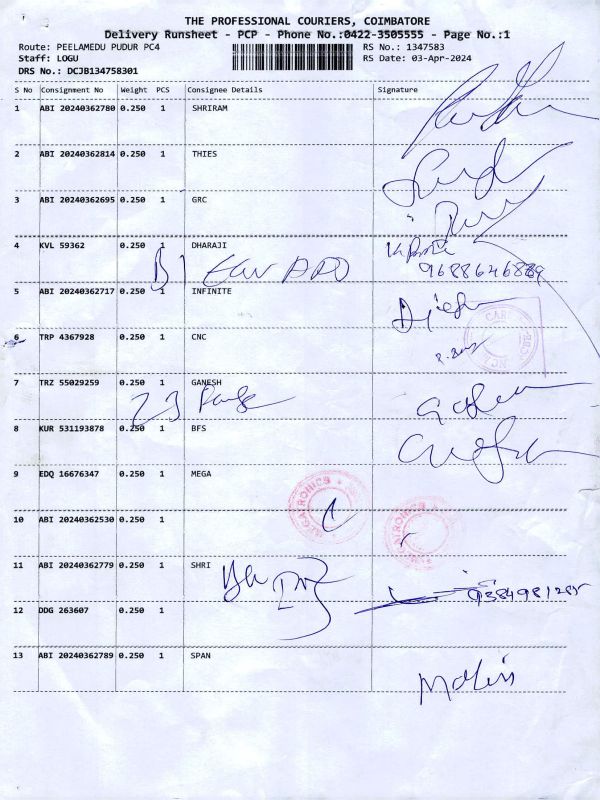 THE PROFESSIONAL COURIERS, COIMBATORE
Delivery Runsheet - PCP - Phone No.:0422-3505555 - Page No.:1
Route: PEELAMEDU PUDUR PC4 RS No.: 1347583
Staff: LOGU RS Date: 03-Apr-2024
DRS No.: DCJB134758301
S No Consignment No Weight PCS Consignee Details Signature
1 ABI 20240362780 0.250 1 SHRIRAM
2 ABI 20240362814 0.250 1 THIES
3 ABI 20240362695 0.250 1 GRC
4 KVL 59362 0.250 1 DHARAJI
5 ABI 20240362717 0.250 1 INFINITE
6 TRP 4367928 0.250 1 CNC
7 TRZ 55029259 0.250 1 GANESH
8 KUR 531193878 0.250 1 BFS
9 EDQ 16676347 0.250 1 MEGA
10 ABI 20240362530 0.250 1
11 ABI 20240362779 0.250 1 SHRI
9384981285
12 DDG 263607 0.250 1
13 ABI 20240362789 0.250 1 SPAN